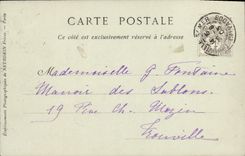 CARTE POSTALE
Ce côté est exclusivement réservé à l'adresse
Mademoiselle G Fontaine
Manoir des Sablons
19 Rue Ch. Mozin
Trouville
Etablissements Photographiques de NEURDEIN Frères. - Paris